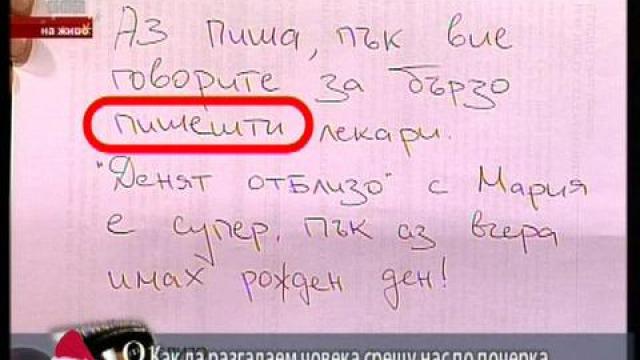 на живо
Аз пиша, пък вие
говорите за бързо
пишешти лекари.
"Денят отблизо" с Мария
е супер, пък аз вчера
имах рожден ден!
Как да разгадаем човека срещу нас по почерка